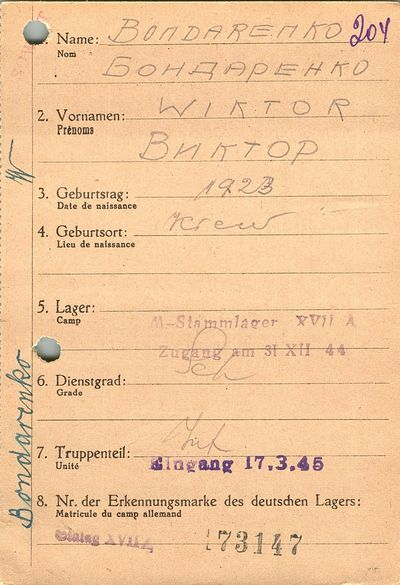 1. Name: BONDARENKO 204
Nom
БОНДАРЕНКО
2. Vornamen: WIKTOR
Prénoms
ВИКТОР
3. Geburtstag: 1923
Date de naissance
4. Geburtsort: Krew
Lieu de naissance
5. Lager: M-Stammlager XVII A
Camp
Zugang am 31 XII 44
6. Dienstgrad:
Grade
7. Truppenteil: Inf
Unité
Eingang 17.3.45
8. Nr. der Erkennungsmarke des deutschen Lagers:
Matricule du camp allemand
Stalag XVII A 173147
W
Bondarenko